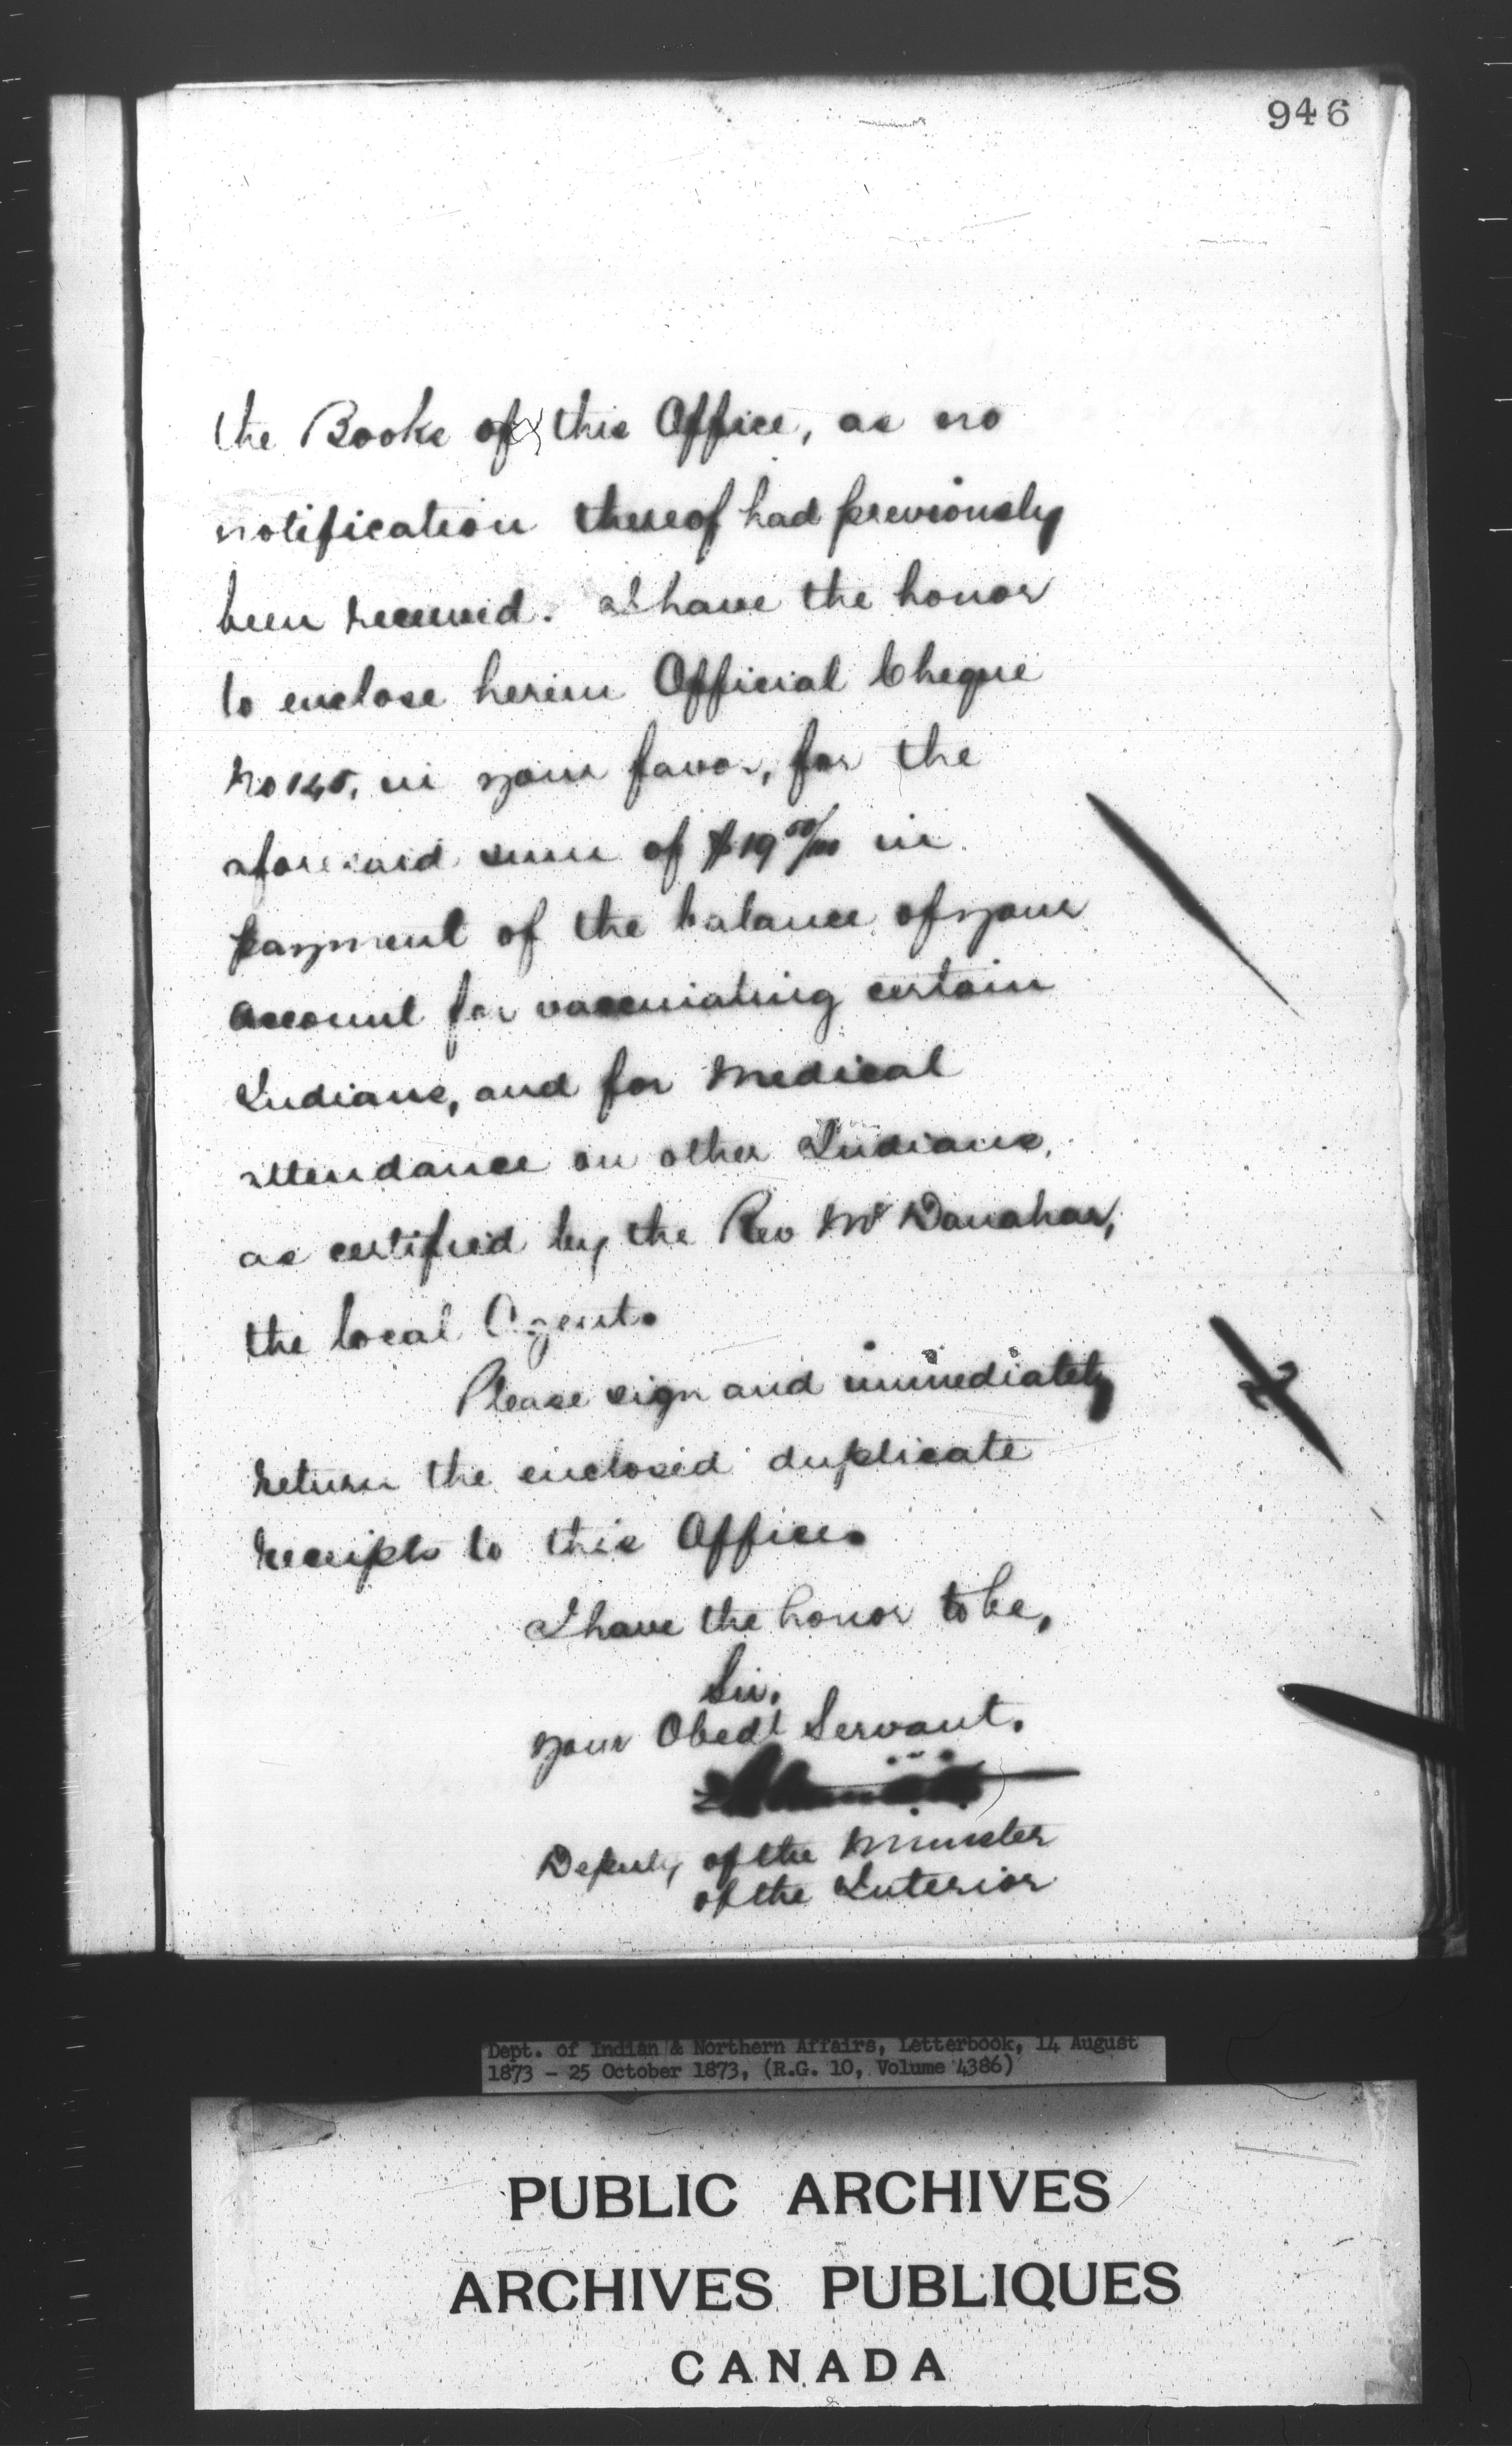 946
the Books of this Office, as no
notification thereof had previously
been received. I have the honor
to enclose herein Official Cheque
No 145, in your favor, for the
aforesaid sum of $19 50/100 in
payment of the balance of your
account for vaccinating certain
Indians, and for medical
attendance on other Indians,
as certified by the Rev Mr Danahar,
the local Agent.
Please sign and immediately
return the enclosed duplicate
receipts to this Office.
I have the honor to be,
Sir,
Your Obedt Servant.
Deputy of the Minister
of the Interior
Dept. of Indian & Northern Affairs, Letterbook, 14 August
1873 - 25 October 1873, (R.G. 10, Volume 4386)
PUBLIC ARCHIVES
ARCHIVES PUBLIQUES
CANADA